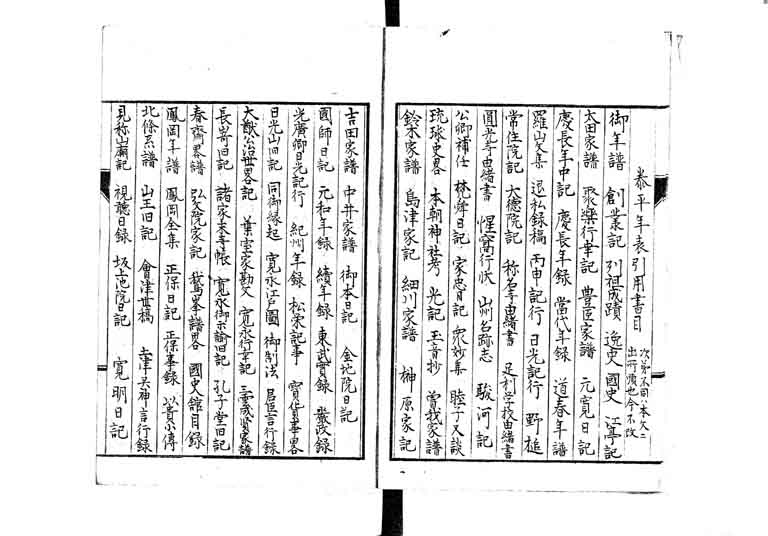 泰平年表引用書目
次第不同本文ニ
出所順也今不改
御年譜 創業記 列祖成蹟 逸史 國史 江亭記
太田家譜 聚樂行幸記 豊臣家譜 元寛日記
慶長年中記 慶長年録 當代年録 道春年譜
羅山文集 退私録稿 丙申記行 日光記行 野槌
常住院記 大德院記 称名寺由緒書 足利学校由緒書
圓光寺由緒書 惺窩行状 山州名跡志 駿河記
公卿補任 梵舜日記 家忠日記 衆妙集 睦子又談
琉球史畧 本朝神社考 光記 玉音抄 曽我家譜
鈴木家譜 島津家記 細川家譜 榊原家記
吉田家譜 中井家譜 御本日記 金地院日記
國師日記 元和年録 續年録 東武實録 嚴政録
光廣卿日光記行 紀州年録 松栄記事 寶貨事畧
日光山旧記 同御縁起 寛永江戸圖 御制法 君臣言行録
大猷公治世畧記 葉室家勘文 寛永行幸記 家譜
長崎旧記 諸家系手帳 寛永御示諭旧記 孔子堂旧記
春齋畧譜 弘文院家記 鵞峯譜畧 國史館目録
鳳岡年譜 鳳岡全集 正保日記 正保事録 以貴小傳
北條系譜 山王旧記 會津世稿 土津灵神言行録
見称山廟記 視聽日録 坂上池院日記 寛明日記